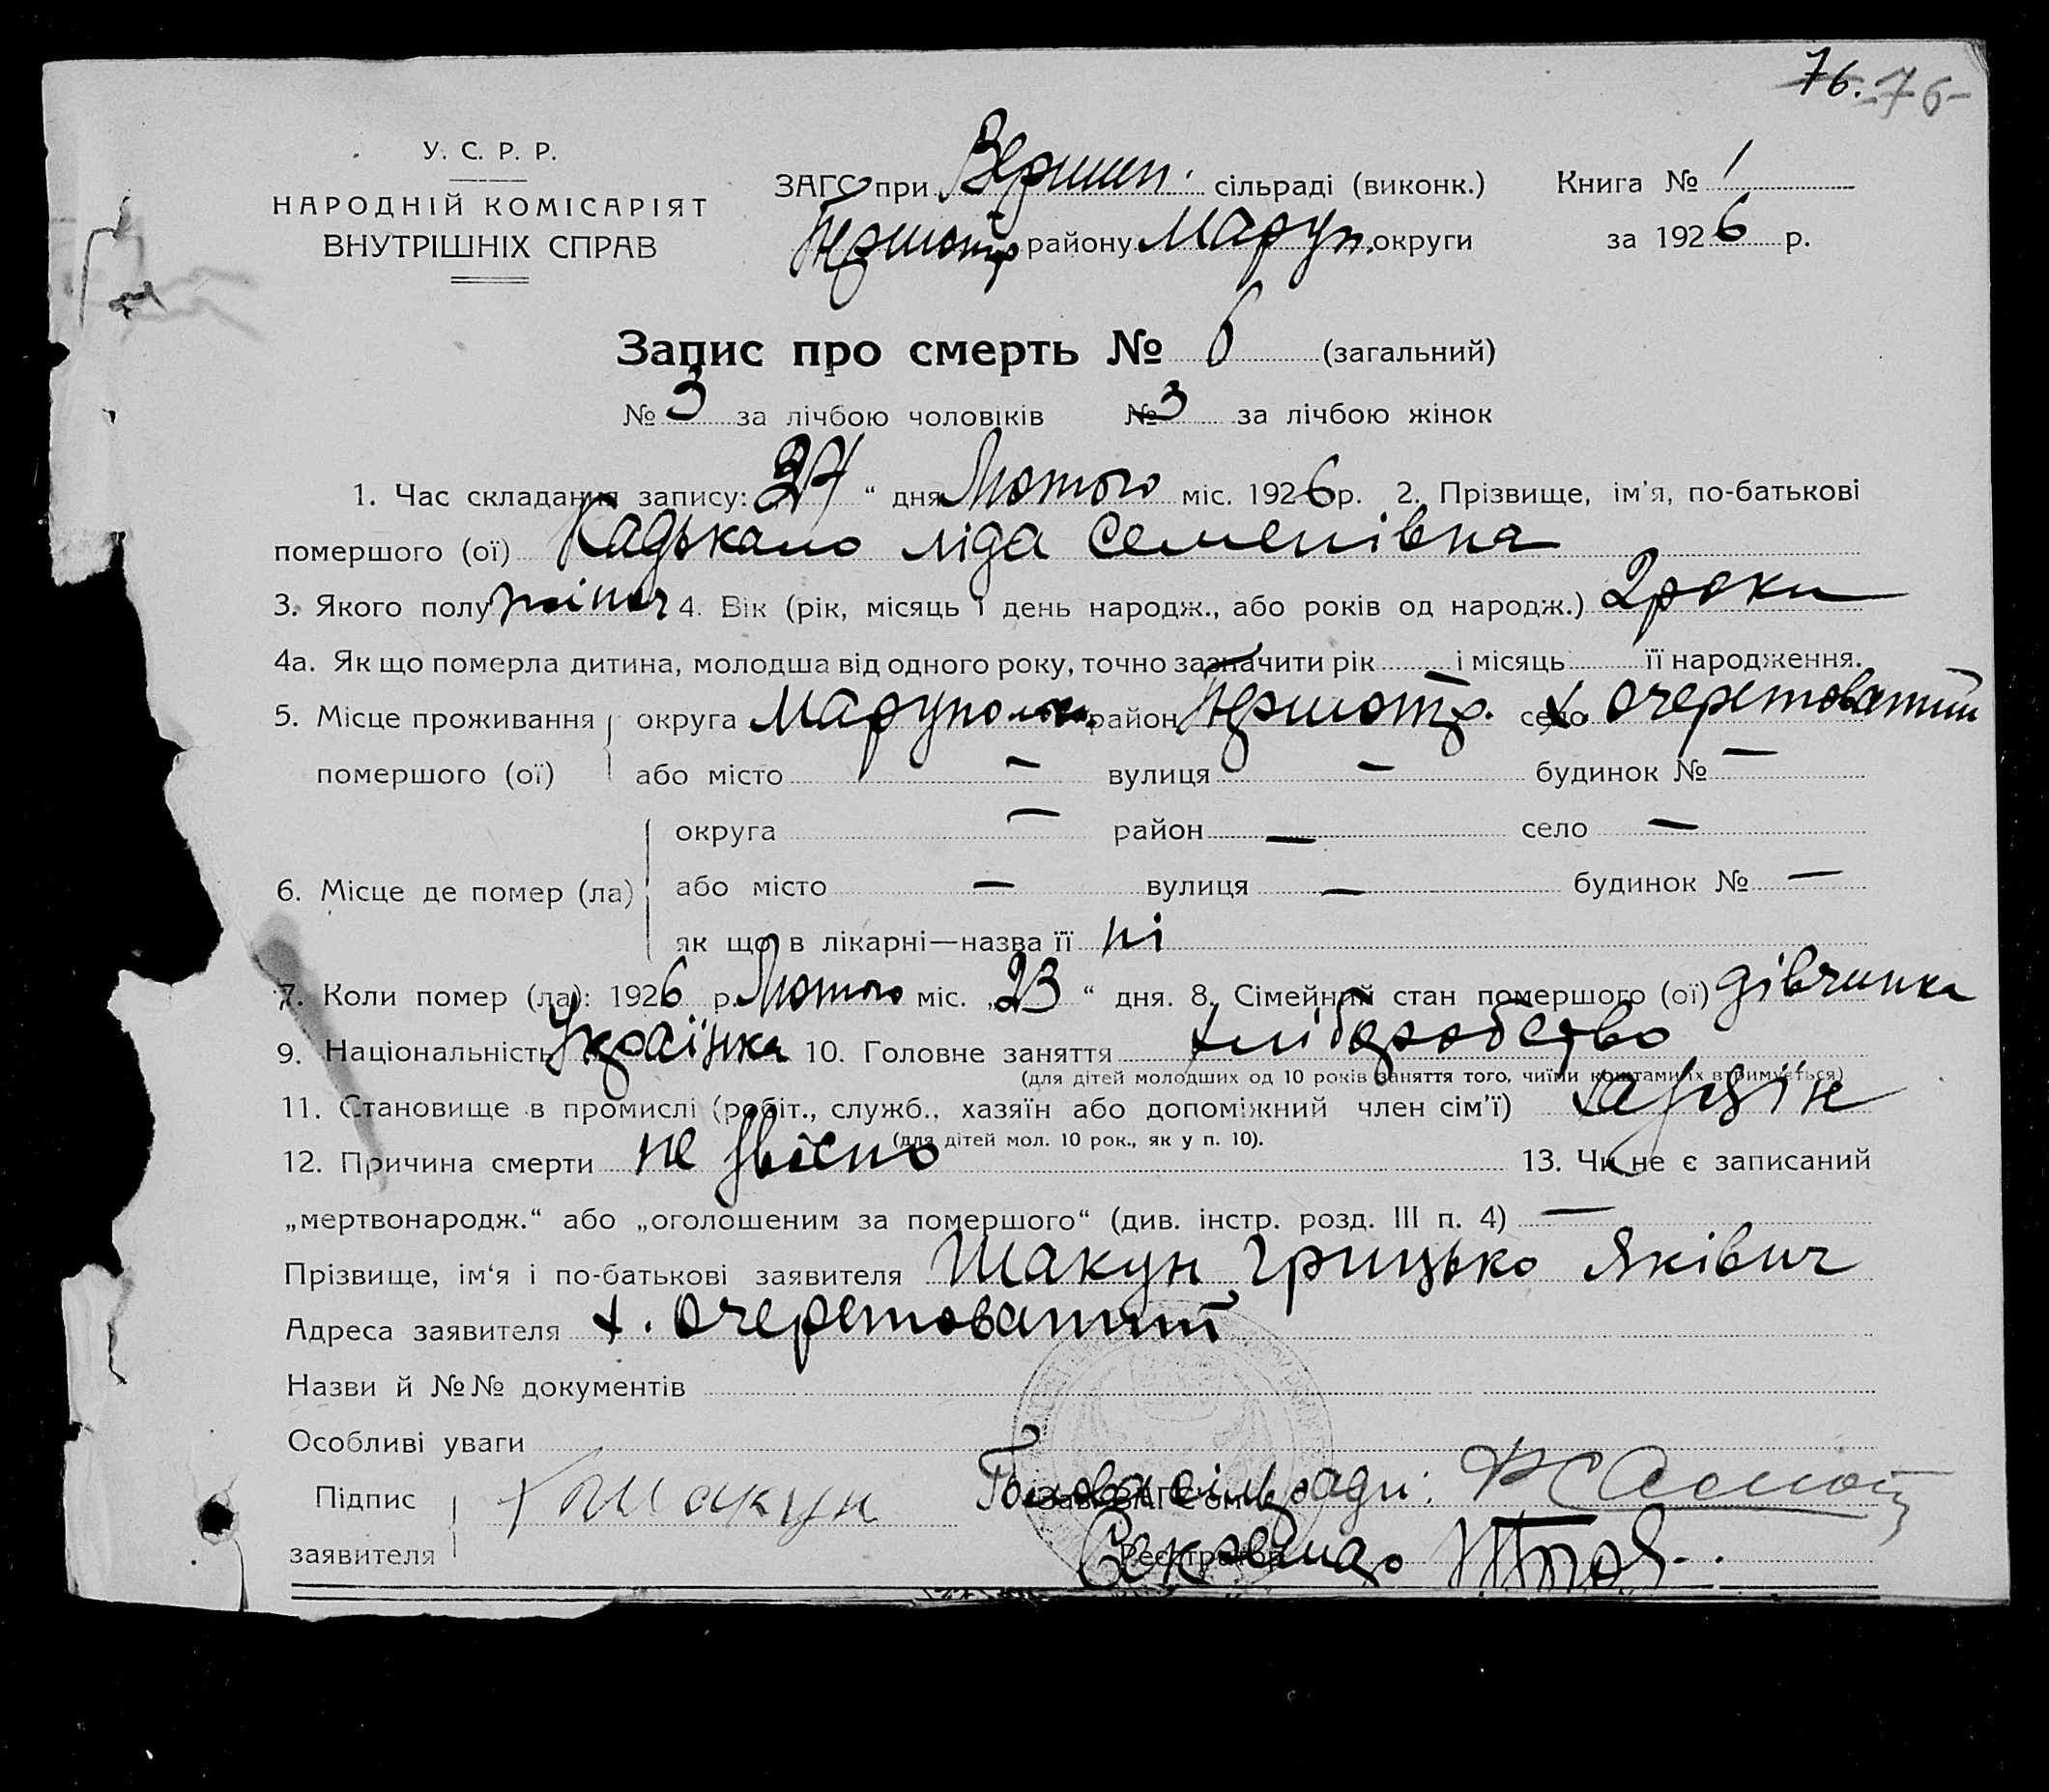 76. 76
У. С. Р. Р.
НАРОДНІЙ КОМІСАРІЯТ
ВНУТРІШНІХ СПРАВ
ЗАГС при Вершин. сільраді (виконк.) Книга № 1
Першотр району Маруп. округи за 1926 р.
Запис про смерть № 6 (загальний)
№ 3 за лічбою чоловіків № 3 за лічбою жінок
1. Час складання запису: 27 “ дня Лютого міс. 1926 р. 2. Прізвище, ім'я, по-батькові
помершого (ої) Кадькало ліда Семенівна
3. Якого полу жіноч 4. Вік (рік, місяць і день народж., або років од народж.) 2 роки
4а. Як що померла дитина, молодша від одного року, точно зазначити рік — і місяць — її народження.
5. Місце проживання округа Маруполь. район Першотр. село х. Очеретоватий
помершого (ої) або місто — вулиця — будинок № —
округа — район — село —
6. Місце де помер (ла) або місто — вулиця — будинок № —
як що в лікарні—назва її ні
7. Коли помер (ла): 1926 р. Лютого міс. „23 “ дня. 8. Сімейний стан помершого (ої) дівчинка
9. Національність Українка 10. Головне заняття хліборобство
(для дітей молодших од 10 років заняття того, чиїми коштами їх втримується)
11. Становище в промислі (робіт., служб., хазяїн або допоміжний член сім'ї) хазяїн
(для дітей мол. 10 рок., як у п. 10).
12. Причина смерти не звісно 13. Чи не є записаний
„мертвонародж.“ або „оголошеним за помершого“ (див. інстр. розд. III п. 4) —
Прізвище, ім'я і по-батькові заявителя Шакун Грицько Яківич
Адреса заявителя х. Очеретоватий
Назви й №№ документів
Особливі уваги
Підпис Г Шакун Голова сільради:
заявителя Реєстратор